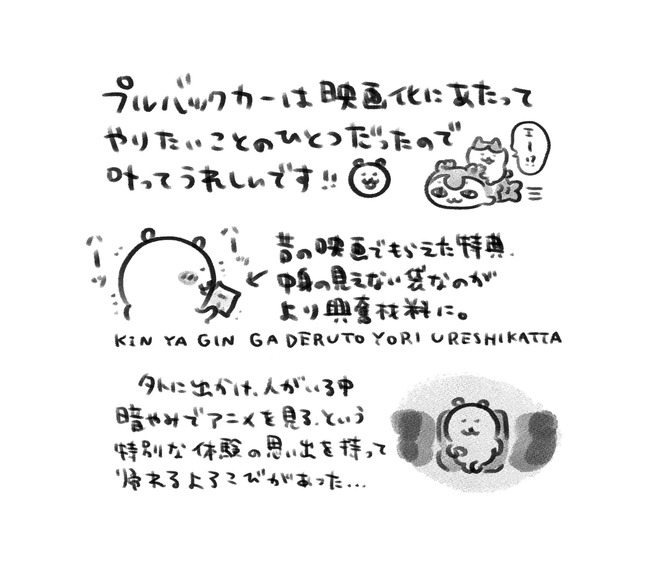 プルバックカーは映画化にあたって
やりたいことのひとつだったので
叶ってうれしいです!!
エー!?
ハーッ
ハーッ
昔の映画でもらえた特典.
中身の見えない袋なのが
より興奮材料に。
KIN YA GIN GA DERUTO YORI URESHIKATTA
外に出かけ、人がいる中
暗やみでアニメを見る、という
特別な体験の思い出を持って
帰れるよろこびがあった...